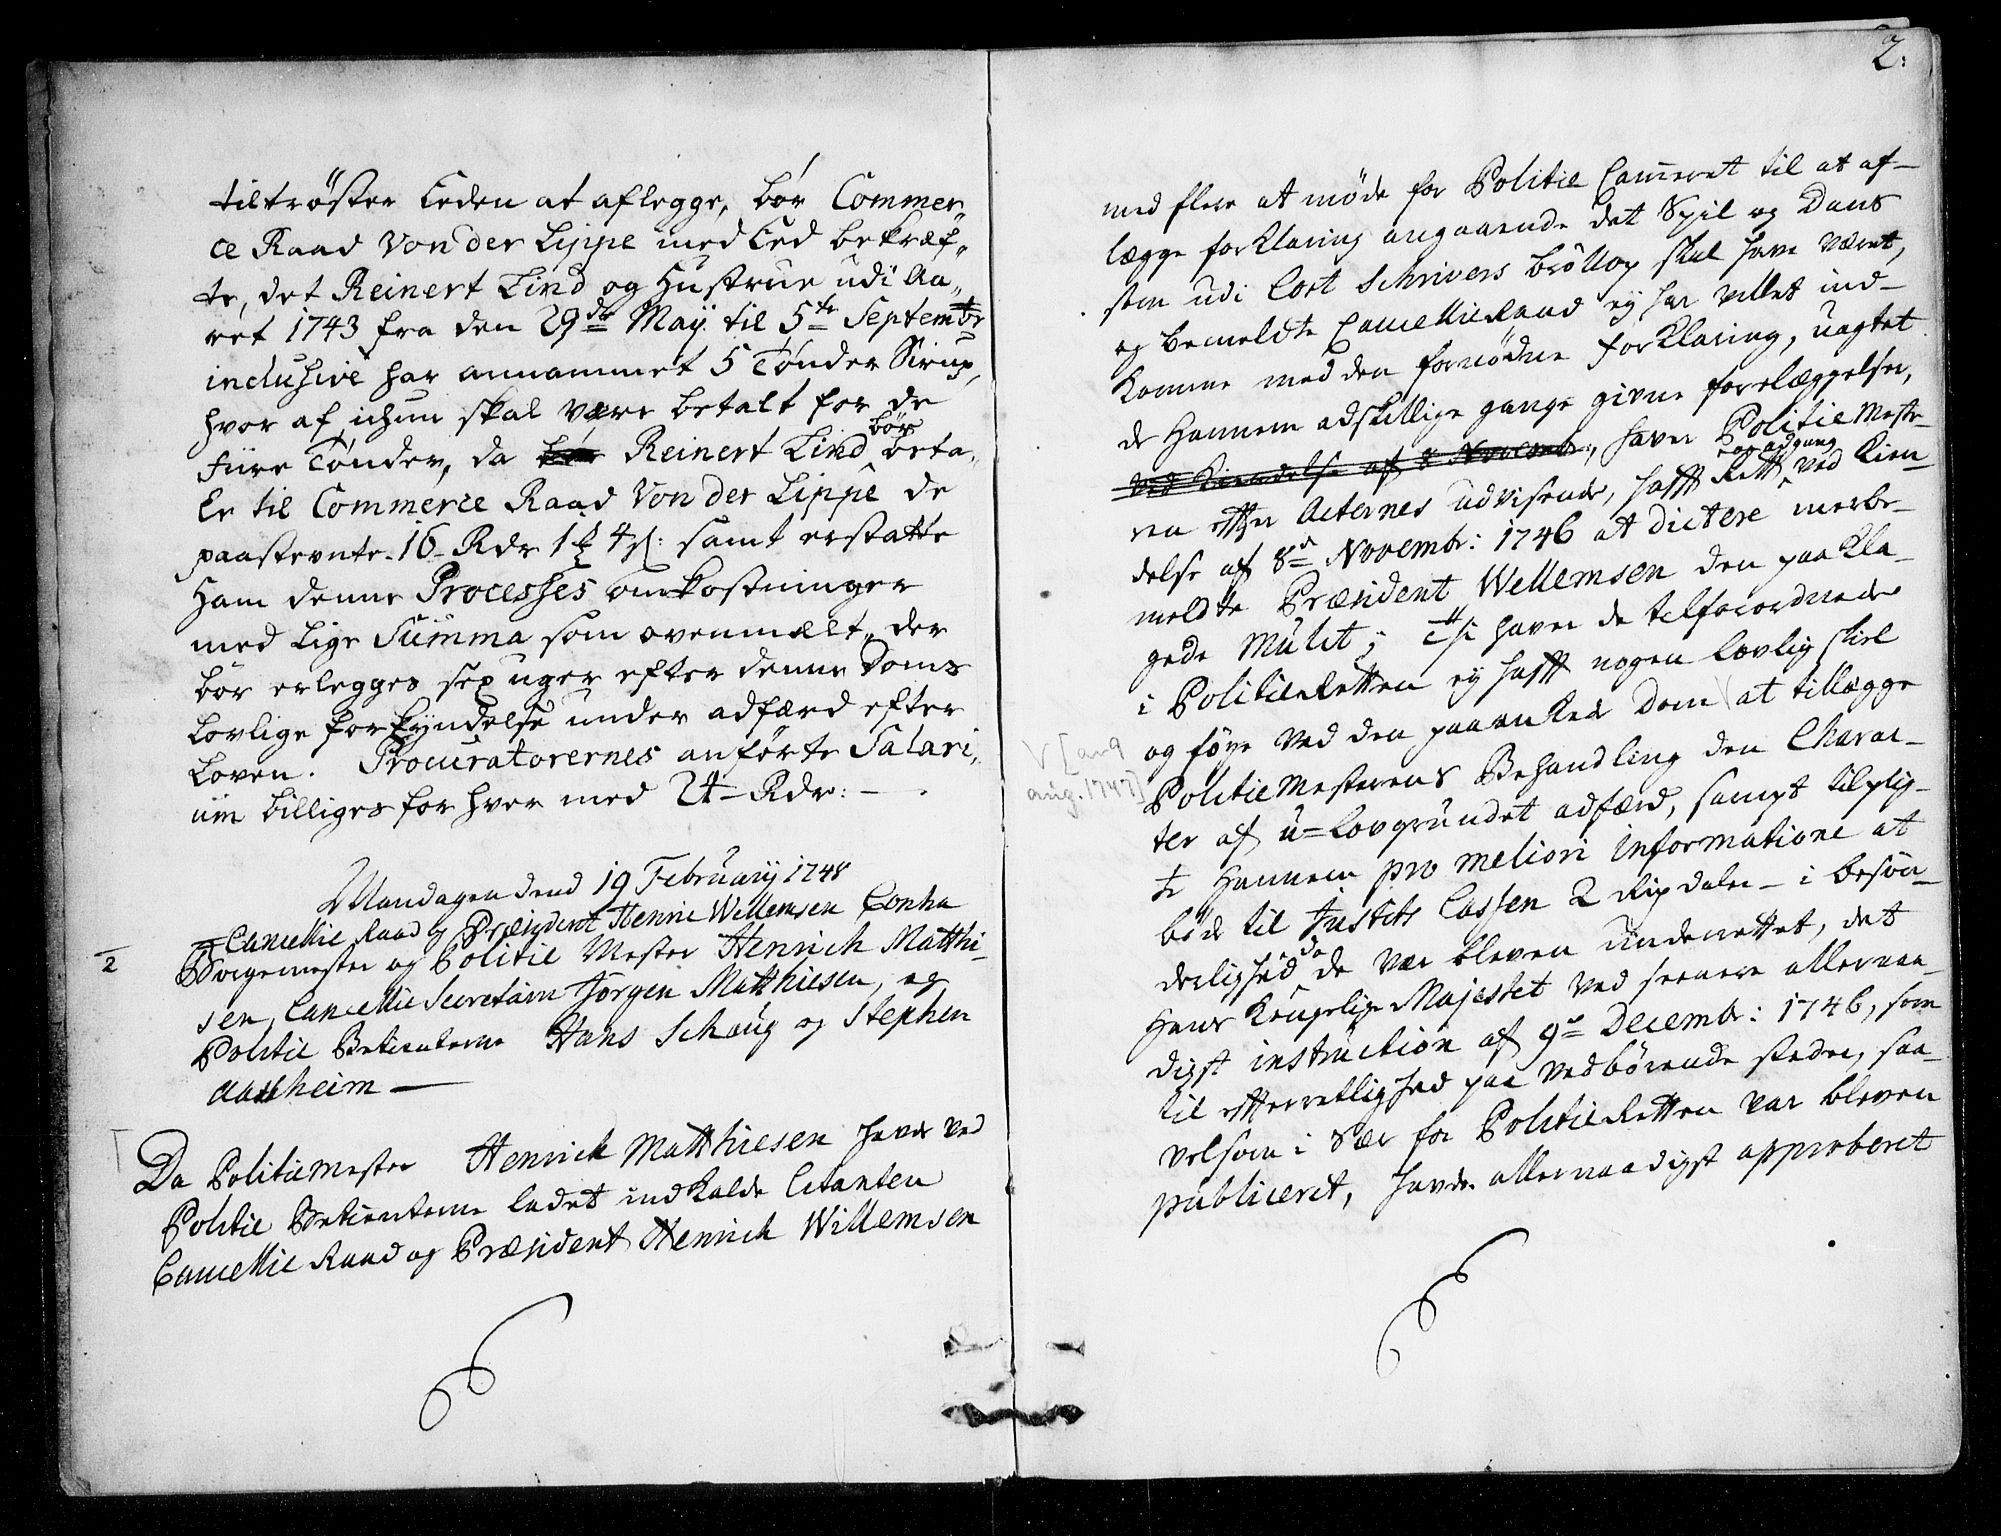 tiltrøster Eeden at aflegge, bør Commer„
ce Raad Von der Lippe med Eed bekræf„
te, det Reinert Lind og Hustrue udi Aa„
ret 1743 fra den 29de Maÿ til 5te Septembr
inclusive har annammet 5 Tønder Sirup,
hvor af ichun skal være betalt for de
fiire Tønder, da Reinert Lind bør beta„
le til Commerce Raad Von der Lippe de
paastevnte 16 Rdr 1 ₶ 4 s: samt erstatte
Ham denne Processes omkostninger
med lige Summa som ovenmælt, der
bør erlegges sex uger efter denne Doms
lovlige forkyndelse under adfærd efter
Loven. Procuratorernes anførte Salari„
um billiges for hver med 24 Rdr: —
Mandagen dend 19 Februarij 1748
Cancellie Raad og Præsident Henric Willemsen Contra
2
Borgemester og Politie Mester Henrich Matthi-
sen, Cancellie Secretairn Jørgen Matthiesen, og
Politie Betienterne Hans Schaug og Stephen
Aasheim —
Da Politiemester Henrich Matthiesen haver ved
Politie Betienterne ladet indkalde Citanten
Cancellie Raad og Præsident Henrich Willemsen
2:
med flere at møde for Politie Cammeret til at af-
lægge forklaring angaaende det Spil og Dans
som udi Cort Schrivers brøllop skal have været,
og bemeldte Cancellie Raad ey har villet ind-
komme med den fornødne forklaring, uagtet
de Hannem adskillige gange givne forelæggelser,
ved Kiendelse af 8 Novembr:, haver Politie Meste-
ren efter Acternes udvisende, hafft Rett og adgang ved Kien-
delse af 8de Novembr: 1746 at dictere merbe-
meldte Præsident Willemsen den paakla-
gede Mulct; Item haver de tilforordnede
i Politie Retten ey hafft nogen lovlig skiel
og føye ved den paaankede Dom at tillægge
V [aug
aug. 1747]
Politie Mesterens Behandling den Charac-
ter af u-lovgrundet adfærd, sampt tilplig-
te Hannem pro meliori informatione at
bøde til Justits Cassen 2 Rixdaler — i besøn-
derlighed da de var bleven underrettet, det
Hans Kongelige Majestet ved seenere allernaa-
digst instruction af 9de Decembr: 1746, som
til efterretlighed paa vedbørende steder, saa-
velsom i Sær for Politie Retten var bleven
publiceret, havde allernaadigst approberet